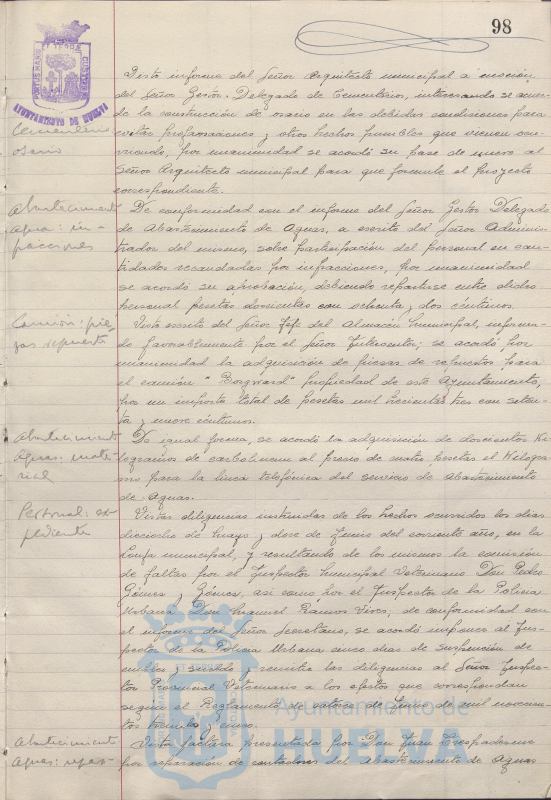 98
PORTUS MARIS ET TERRAE CUSTODIA
AYUNTAMIENTO DE HUELVA
Cementerio
osario
Visto informe del Señor Arquitecto municipal a moción
del Señor Gestor-Delegado de Cementerios, interesando se acuer-
de la construcción de osario en las debidas condiciones para
evitar profanaciones y otros hechos punibles que vienen ocu-
rriendo, por unanimidad se acordó su pase de nuevo al
Señor Arquitecto municipal para que formule el proyecto
correspondiente.
Abastecimiento
Aguas: in-
fracciones
De conformidad con el informe del Señor Gestor Delegado
de Abastecimiento de Aguas, a escrito del Señor Adminis-
trador del mismo, sobre participación del personal en can-
tidades recaudadas por infracciones, por unanimidad
se acordó su aprobación, debiendo repartirse entre dicho
personal pesetas doscientas con ochenta y dos céntimos.
Camión: pie-
zas repuesto
Visto escrito del Señor Jefe del Almacén municipal, informa-
do favorablemente por el Señor Interventor; se acordó por
unanimidad la adquisición de piezas de repuestos para
el camión "Borgward" propiedad de este Ayuntamiento,
por un importe total de pesetas mil trecientas tres con seten-
ta y nueve céntimos.
Abastecimiento
Aguas: mate-
rial
De igual forma, se acordó la adquisición de doscientos Ki-
logramos de carbolineum al precio de cuatro pesetas el Kilogra-
mo para la linea telefónica del servicio de Abastecimiento
de Aguas.
Personal: ex-
pediente
Vistas diligencias instruidas de los hechos ocurridos los dias
dieciocho de Mayo y doce de Junio del corriente año, en la
Lonja municipal, y resultando de los mismos la comisión
de faltas por el Inspector Municipal Veterinario Don Pedro
Gómez y Gómez, asi como por el Inspector de la Policia
Urbana Don Manuel Ramos Vives, de conformidad con
el informe del Señor Secretario, se acordó imponer al Ins-
pector de la Policia Urbana cinco dias de suspensión de
empleo y sueldo y remitir las diligencias al Señor Inspec-
tor Provincial Veterinario a los efectos que correspondan
según el Reglamento de catorce de Junio de mil novecien-
tos treinta y cinco.
Abastecimiento
Aguas: repar-
Vista factura presentada por Don Juan
por reparación de contadores del Abastecimiento de Aguas
Ayuntamiento de
HUELVA